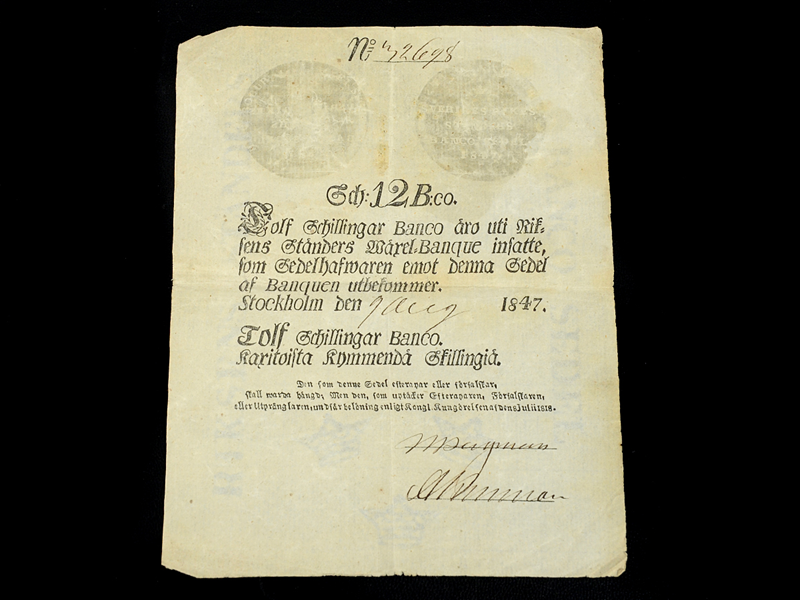 No 32698
Sch: 12 B:co.
Tolf Schillingar Banco äro uti Rik-
sens Ständers Wäxel-Banque insatte,
som Sedelhafwaren emot denna Sedel
af Banquen utbekommer.
Stockholm den 9 Aug 1847.
Tolf Schillingar Banco.
Kaxitoista Kymmendä Skillingiä.
Den som denne Sedel efterapar eller förfalskar,
skall warda hängd; Men den, som uptäcker Efteraparen, Förfalskaren,
eller Utprånglaren, undfår belöning enligt Kongl. Kungörelsen af den Julii 1818.